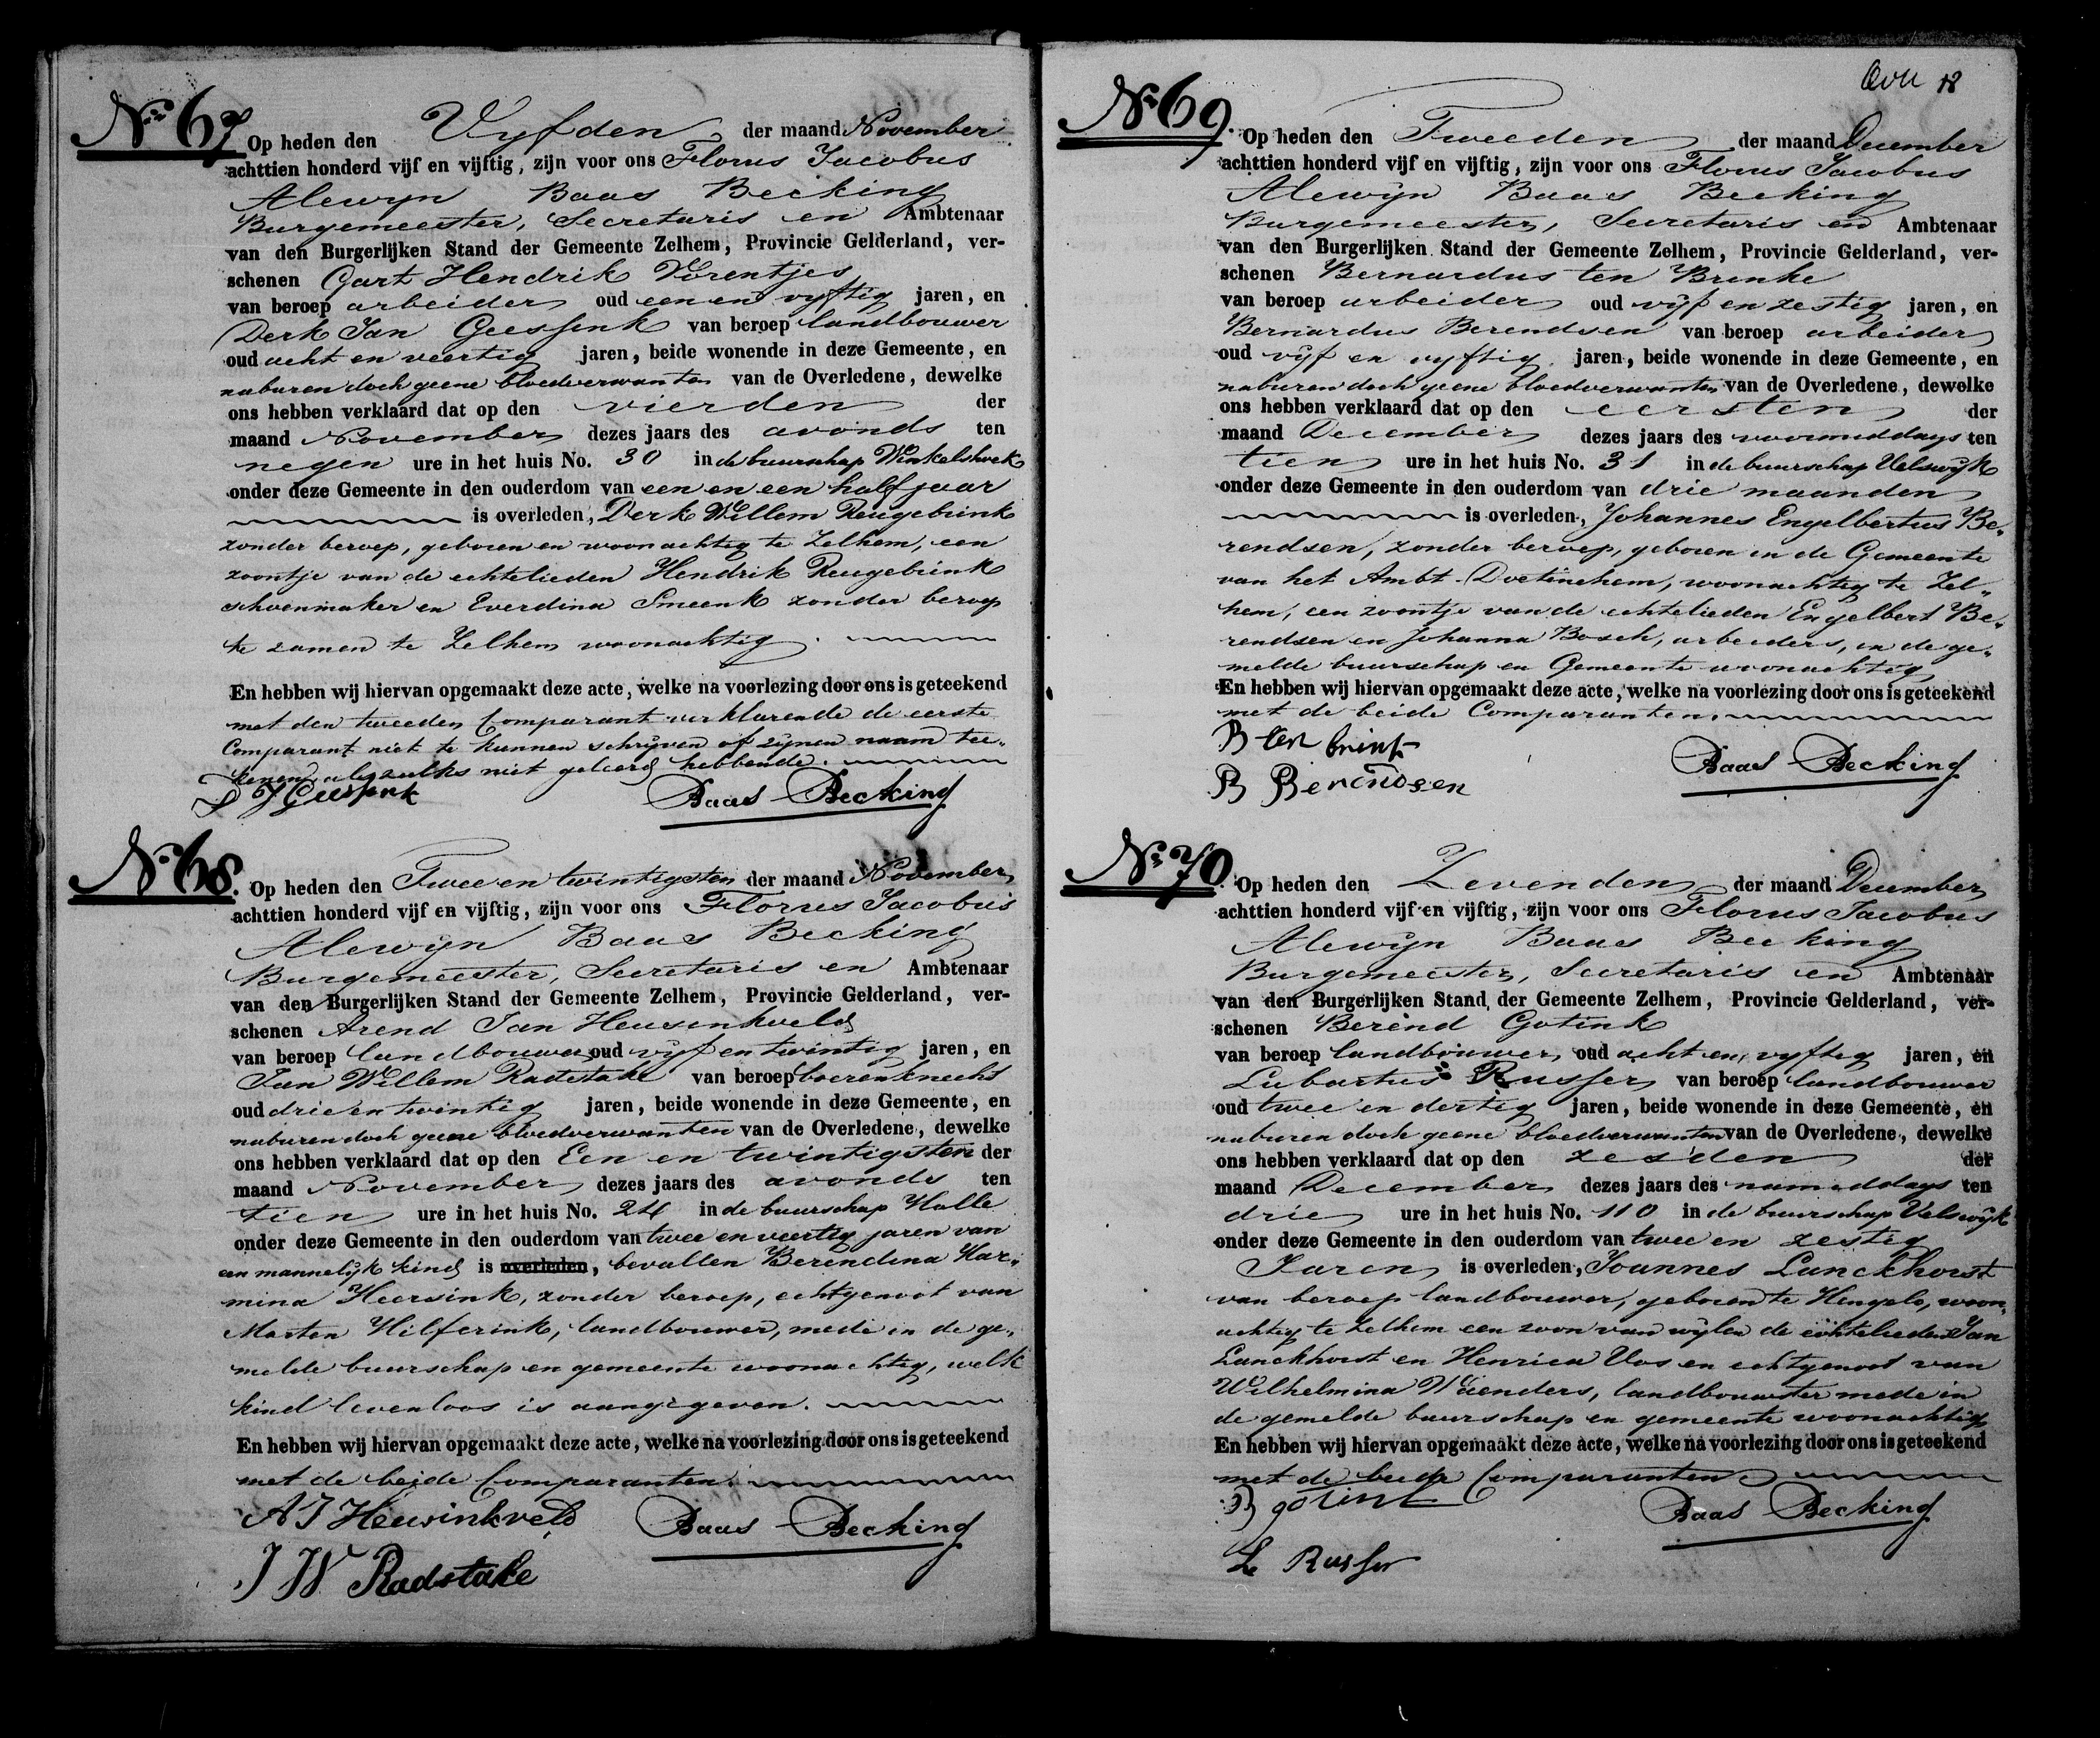 No 67
Op heden den Vyfden der maand November
achttien honderd vijf en vijftig, zijn voor ons Florus Jacobus
Alewyn Baas Becking
Burgemeester, Secretaris en Ambtenaar
van den Burgerlijken Stand der Gemeente Zelhem, Provincie Gelderland, ver-
schenen Gart Hendrik
van beroep arbeider oud een en vyftig jaren, en
Derk Jan Geessink van beroep landbouwer
oud acht en veertig jaren, beide wonende in deze Gemeente, en
naburen doch geene bloedverwanten van de Overledene, dewelke
ons hebben verklaard dat op den vierden der
maand November dezes jaars des avonds ten
negen ure in het huis No. 30 in de buurschap Winkelshoek
onder deze Gemeente in den ouderdom van een en een half jaar
is overleden, Derk Willem Reugebrink
zonder beroep, geboren en woonachtig te Zelhem, een
zoontje van de echtelieden Hendrik Reugebrink
schoenmaker en Everdina Smeenk zonder beroep
te zamen te Zelhem woonachtig.
En hebben wij hiervan opgemaakt deze acte, welke na voorlezing door ons is geteekend
met den tweeden Comparant verklarende de eerste
Comparant niet te kunnen schrijven of zijnen naam tee-
kenen als zulks niet geleerd hebbende.
D J Geessink Baas Becking
No 68.
Op heden den Twee en twintigsten der maand November
achttien honderd vijf en vijftig, zijn voor ons Florus Jacobus
Alewyn Baas Becking
Burgemeester, Secretaris en Ambtenaar
van den Burgerlijken Stand der Gemeente Zelhem, Provincie Gelderland, ver-
schenen Arend Jan Heusenkveld
van beroep landbouwer oud vyf en twintig jaren, en
Jan Willem Radstake van beroep boerenknecht
oud drie en twintig jaren, beide wonende in deze Gemeente, en
naburen doch geene bloedverwanten van de Overledene, dewelke
ons hebben verklaard dat op den Een en twintigsten der
maand November dezes jaars des avonds ten
tien ure in het huis No. 24 in de buurschap Halle
onder deze Gemeente in den ouderdom van twee en veertig jaren van
een mannelijk kind is overleden, bevallen Berendina Har-
mina Heersink, zonder beroep, echtgenoot van
Marten Hilferink, landbouwer, mede in de ge-
melde buurschap en gemeente woonachtig, welk
kind levenloos is aangegeven.
En hebben wij hiervan opgemaakt deze acte, welke na voorlezing door ons is geteekend
met de beide Comparanten.
A J Heusinkveld Baas Becking
J W Radstake
18
No 69.
Op heden den Tweeden der maand December
achttien honderd vijf en vijftig, zijn voor ons Florus Jacobus
Alewijn Baas Becking
Burgemeester, Secretaris en Ambtenaar
van den Burgerlijken Stand der Gemeente Zelhem, Provincie Gelderland, ver-
schenen Bernardus ten Brinke
van beroep arbeider oud vijf en zestig jaren, en
Bernardus Berendsen van beroep arbeider
oud vijf en vyftig jaren, beide wonende in deze Gemeente, en
naburen doch geene bloedverwanten van de Overledene, dewelke
ons hebben verklaard dat op den eersten der
maand December dezes jaars des voormiddags ten
tien ure in het huis No. 31 in de buurschap Velswijk
onder deze Gemeente in den ouderdom van drie maanden
is overleden, Johannes Engelbertus Be-
rendsen, zonder beroep, geboren in de Gemeente
van het Ambt-Doetinchem, woonachtig te Zel-
hem, een zoontje van de echtelieden Engelbert Be-
rendsen en Johanna Bosch, arbeiders, in de ge-
melde buurschap en Gemeente woonachtig
En hebben wij hiervan opgemaakt deze acte, welke na voorlezing door ons is geteekend
met de beide Comparanten.
B ten brink
Baas Becking
B Berendsen
No 70.
Op heden den Zevenden der maand December
achttien honderd vijf en vijftig, zijn voor ons Florus Jacobus
Alewijn Baas Becking
Burgemeester, Secretaris en Ambtenaar
van den Burgerlijken Stand der Gemeente Zelhem, Provincie Gelderland, ver-
schenen Berend Gotink
van beroep landbouwer oud acht en vyftig jaren, en
Lubartus Russer van beroep landbouwer
oud twee en dertig jaren, beide wonende in deze Gemeente, en
naburen doch geene bloedverwanten van de Overledene, dewelke
ons hebben verklaard dat op den zesden der
maand December dezes jaars des namiddags ten
drie ure in het huis No. 110 in de buurschap Velswijk
onder deze Gemeente in den ouderdom van twee en zestig
Jaren is overleden, Joannes Lanckhorst
van beroep landbouwer, geboren te Hengelo, woon-
achtig te Zelhem een zoon van wijlen de echtelieden Jan
Lanckhorst en Henrica Vos en echtgenoot van
Wilhelmina Waenders, landbouwster mede in
de gemelde buurschap en gemeente woonachtig
En hebben wij hiervan opgemaakt deze acte, welke na voorlezing door ons is geteekend
met de beide Comparanten
B gotink Baas Becking
L Russer